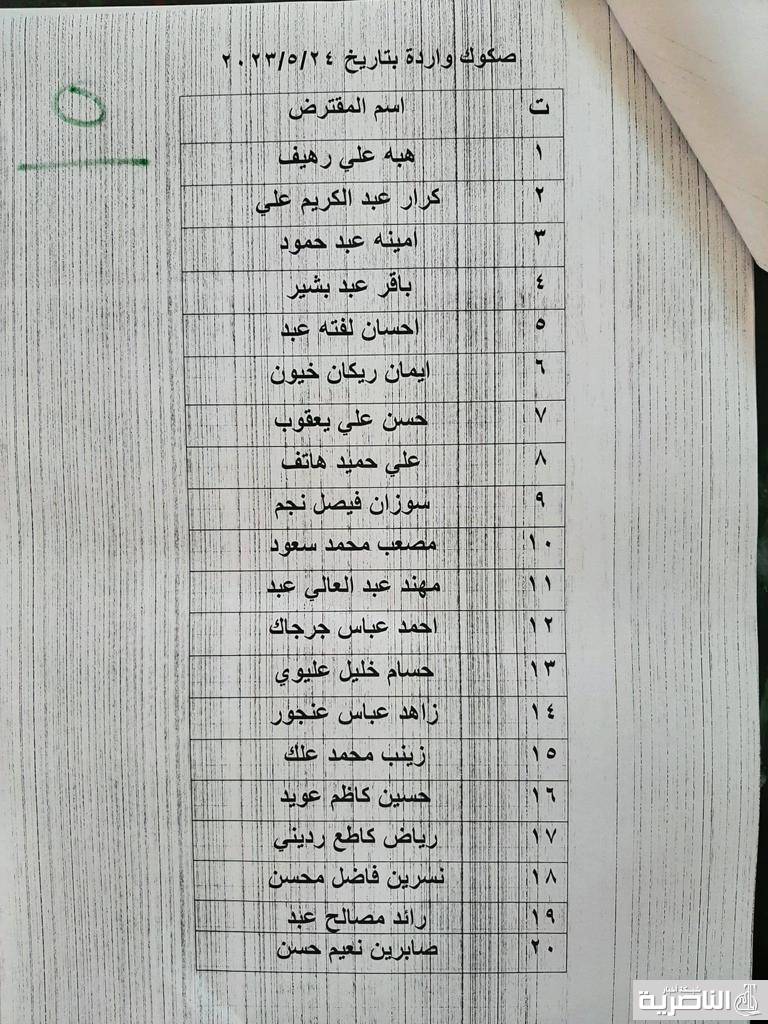 صكوك واردة بتاريخ ٢٠٢٣/٥/٢٤
ت اسم المقترض
١ هبه علي رهيف
٢ كرار عبد الكريم علي
٣ امينه عبد حمود
٤ باقر عبد بشير
٥ احسان لفته عبد
٦ ايمان ريكان خيون
٧ حسن علي يعقوب
٨ علي حميد هاتف
٩ سوزان فيصل نجم
١٠ مصعب محمد سعود
١١ مهند عبد العالي عبد
١٢ احمد عباس جرجاك
١٣ حسام خليل عليوي
١٤ زاهد عباس عنجور
١٥ زينب محمد علك
١٦ حسين كاظم عويد
١٧ رياض كاطع رديني
١٨ نسرين فاضل محسن
١٩ رائد مصالح عبد
٢٠ صابرين نعيم حسن
٥
شبكة اخبار
الناصرية